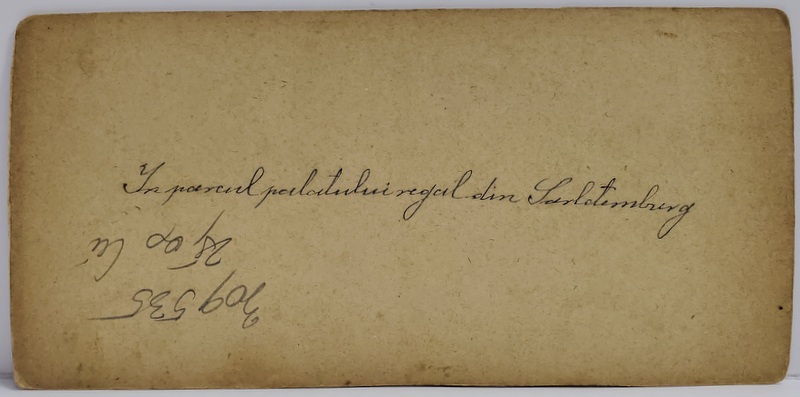 In parcul palatului regal din Sarlotemburg
309535
lei